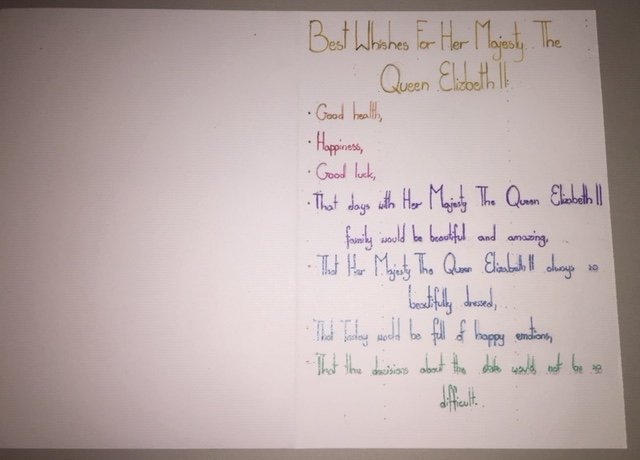 Best Whishes For Her Majesty The
Queen Elizabeth II:
• Good health,
• Happiness,
• Good luck,
• That days with Her Majesty The Queen Elizabeth II
family would be beautiful and amazing,
• That Her Majesty The Queen Elizabeth II always so
beautifully dressed,
• That Today would be full of happy emotions,
• That the decisions about the state would not be so
difficult.